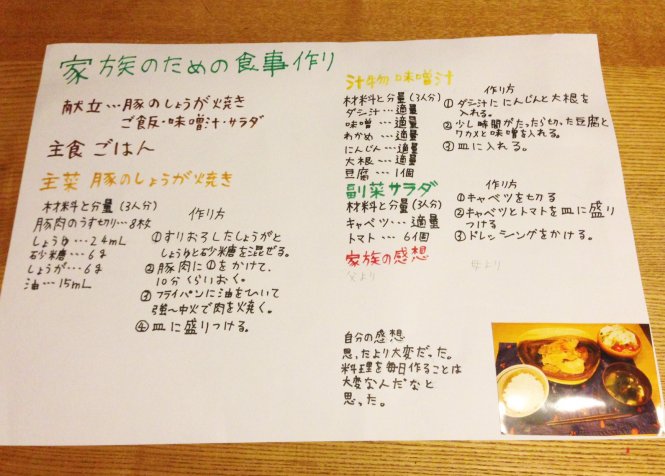 家族のための食事作り
献立…豚のしょうが焼き
ご飯・味噌汁・サラダ
主食 ごはん
主菜 豚のしょうが焼き
材料と分量(3人分)
豚肉のうす切り…8枚
しょうゆ…24mL
砂糖…6g
しょうが…6g
油…15mL
作り方
①すりおろしたしょうがと
しょうゆと砂糖を混ぜる。
②豚肉に①をかけて、
10分くらいおく。
③フライパンに油をひいて
強〜中火で肉を焼く。
④皿に盛りつける。
汁物 味噌汁
材料と分量(3人分)
ダシ汁…適量
味噌…適量
わかめ…適量
にんじん…適量
大根…適量
豆腐…1個
作り方
①ダシ汁ににんじんと大根を
入れる。
②少し時間がたったら切った豆腐と
ワカメと味噌を入れる。
③皿に入れる。
副菜サラダ
材料と分量(3人分)
キャベツ…適量
トマト…6個
作り方
①キャベツを切る
②キャベツとトマトを皿に盛り
つける
③ドレッシングをかける。
家族の感想
父より
母より
自分の感想
思ったより大変だった。
料理を毎日作ることは
大変なんだなと
思った。